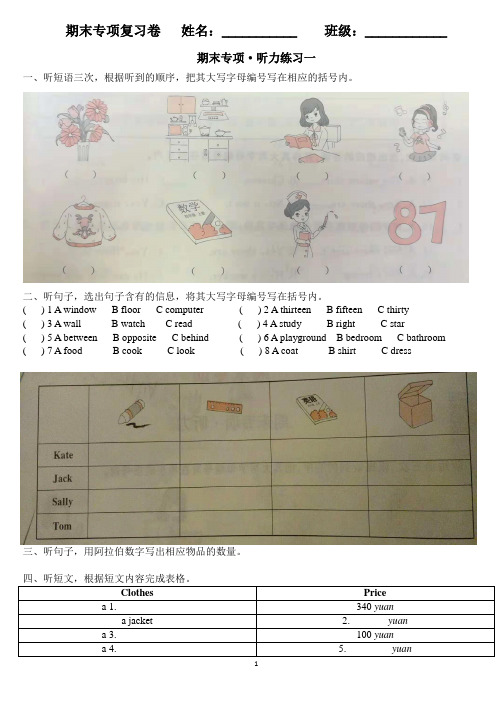 期末专项复习卷 姓名：___________ 班级：____________
期末专项·听力练习一
一、听短语三次，根据听到的顺序，把其大写字母编号写在相应的括号内。
( ) ( ) ( ) ( )
数学
87
( ) ( ) ( ) ( )
二、听句子，选出句子含有的信息，将其大写字母编号写在括号内。
( ) 1 A window B floor C computer ( ) 2 A thirteen B fifteen C thirty
( ) 3 A wall B watch C read ( ) 4 A study B right C star
( ) 5 A between B opposite C behind ( ) 6 A playground B bedroom C bathroom
( ) 7 A food B cook C look ( ) 8 A coat B shirt C dress
英语
Kate
Jack
Sally
Tom
三、听句子，用阿拉伯数字写出相应物品的数量。
四、听短文，根据短文内容完成表格。
Clothes Price
a 1. 340 yuan
a jacket 2. yuan
a 3. 100 yuan
a 4. 5. yuan
1